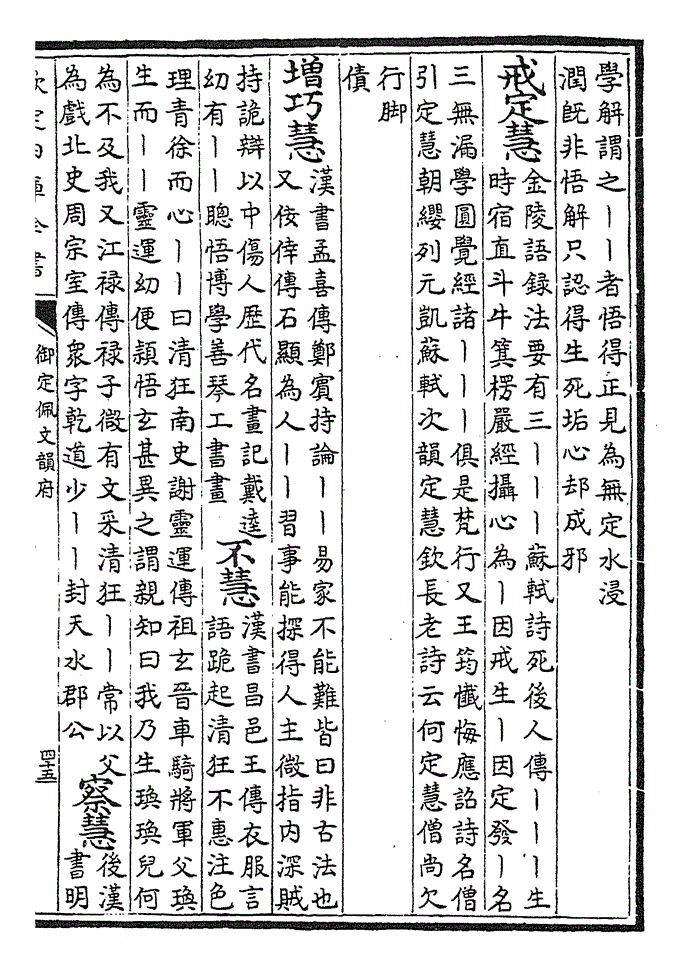 學解謂之丨丨者悟得正見為無定水浸
潤旣非悟解只認得生死垢心却成邪
戒定慧
金陵語録法要有三丨丨丨蘇軾詩死後人傳丨丨丨生
時宿直斗牛箕楞嚴經攝心為丨因戒生丨因定發丨名
三無漏學圓覺經諸丨丨丨俱是梵行又王筠懺悔應詔詩名僧
引定慧朝纓列元凱蘇軾次韻定慧欽長老詩云何定慧僧尚欠
行脚
債
增巧慧
漢書孟喜傳鄭賓持論丨丨易家不能難皆曰非古法也
又佞倖傳石顯為人丨丨習事能探得人主微指内深賊
持詭辯以中傷人歴代名畫記戴逵
幼有丨丨聰悟博學善琴工書畫
不慧
漢書昌邑王傳衣服言
語跪起清狂不惠注色
理青徐而心丨丨曰清狂南史謝靈運傳祖玄晉車騎將軍父瑍
生而丨丨靈運幼便頴悟玄甚異之謂親知曰我乃生瑍瑍兒何
為不及我又江禄傳禄子徽有文采清狂丨丨常以父
為戲北史周宗室傳衆字乾道少丨丨封天水郡公
察慧
後漢
書明
欽定四庫全書
御定佩文韻府
四十五